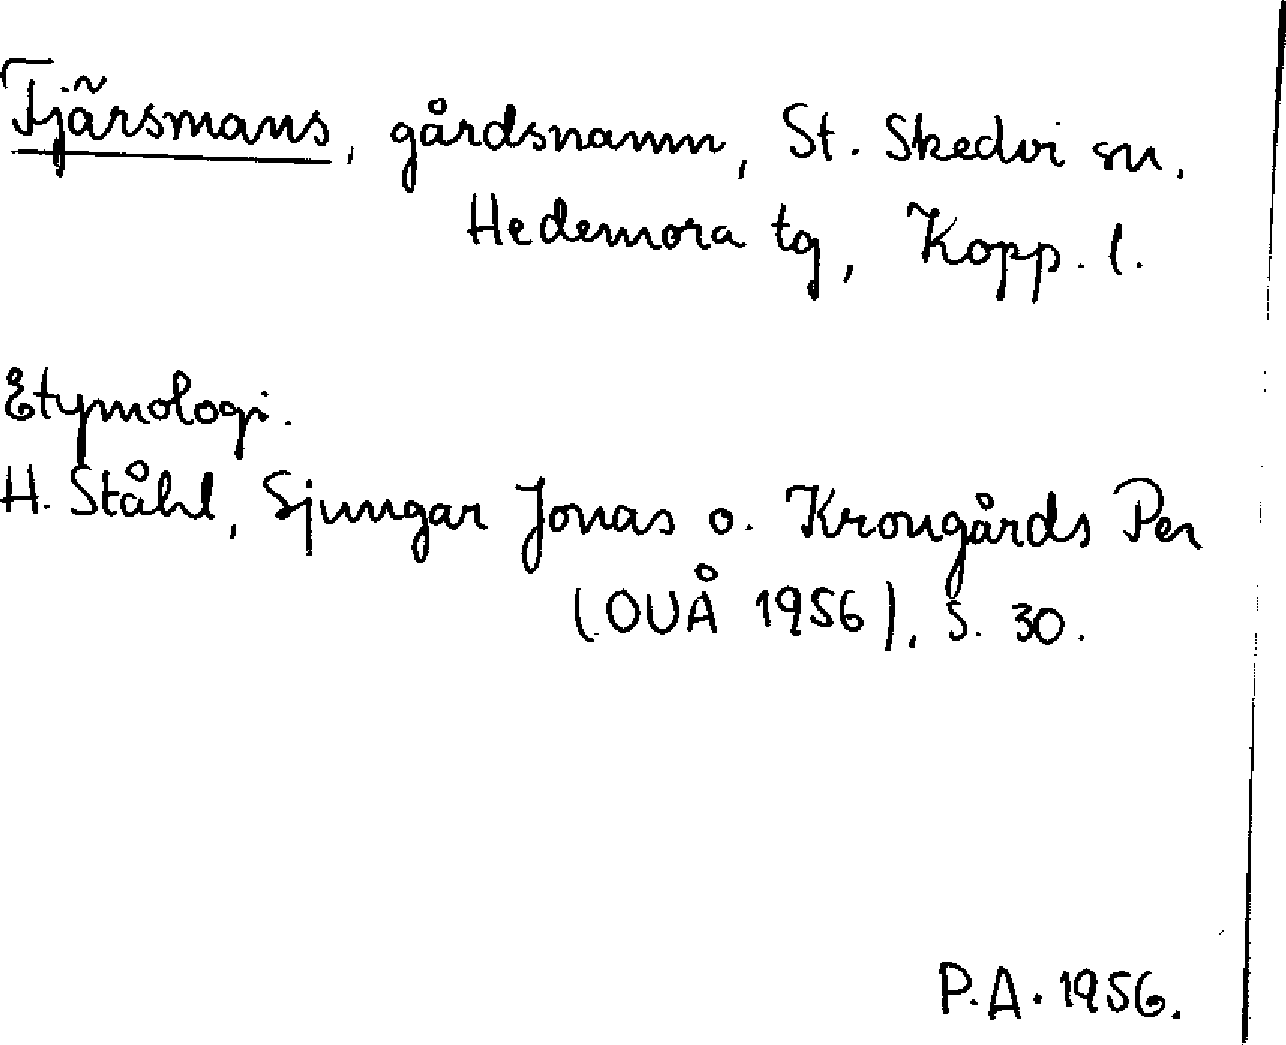 Tjärsmans, gårdsnamn, St. Skedvi sn.
Hedemora tg, Kopp. l.
Etymologi.
H. Ståhl, Sjungar Jonas o. Krongårds Per
(OUÅ 1956), S. 30.
P.A. 1956.